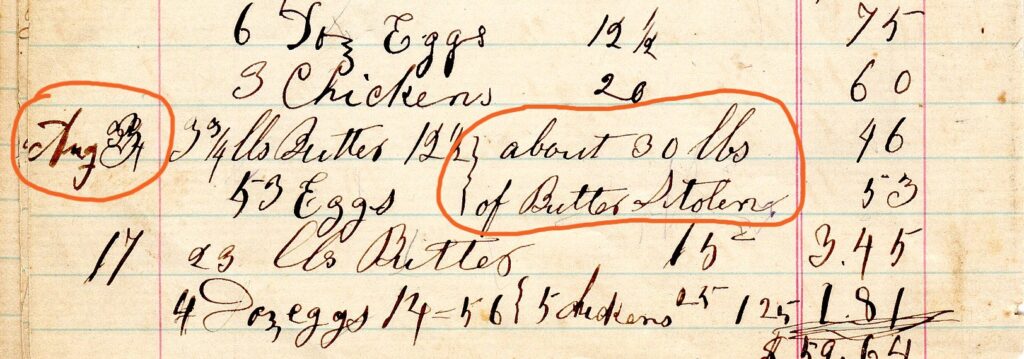 6 Doz Eggs 12 ½ 75
3 Chickens 20 60
Aug 3 ¾ lbs Butter 12 ½ } about 30 lbs 46
53 Eggs { of Butter Stolen. 53
17 23 lbs Butter 15 3.45
4 Doz eggs 14 = 56 { 5 chickens 25 125 1.81
$ 59.64